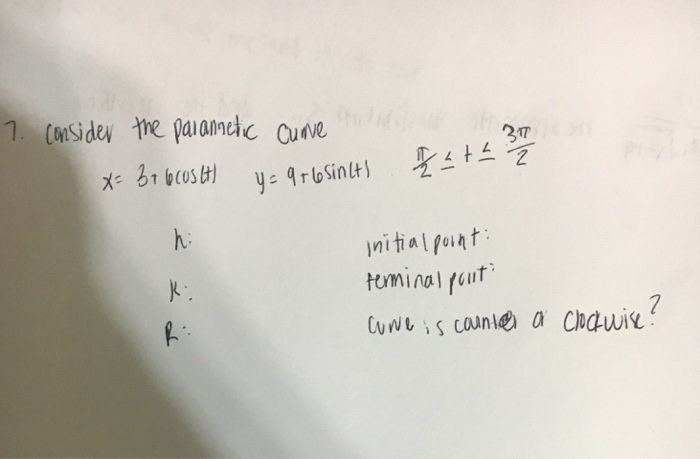 7. consider the parametic curve
x= 3+6cos(t) y= 9+6sin(t) π/2 ≤ t ≤ 3π/2
h: initial point:
k: terminal point:
R: curve is counter or clockwise?